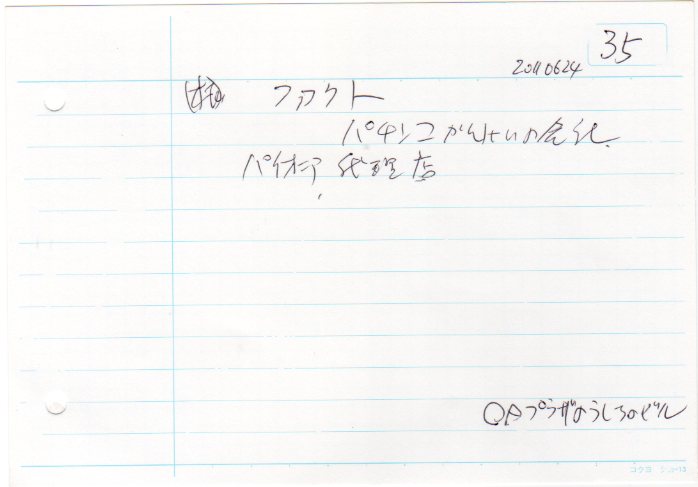 35
20110624
(株) ファクト
パチンコがんけいの会社
パイオニア 代理店
OAプラザのうしろのビル
コクヨ シカ-13